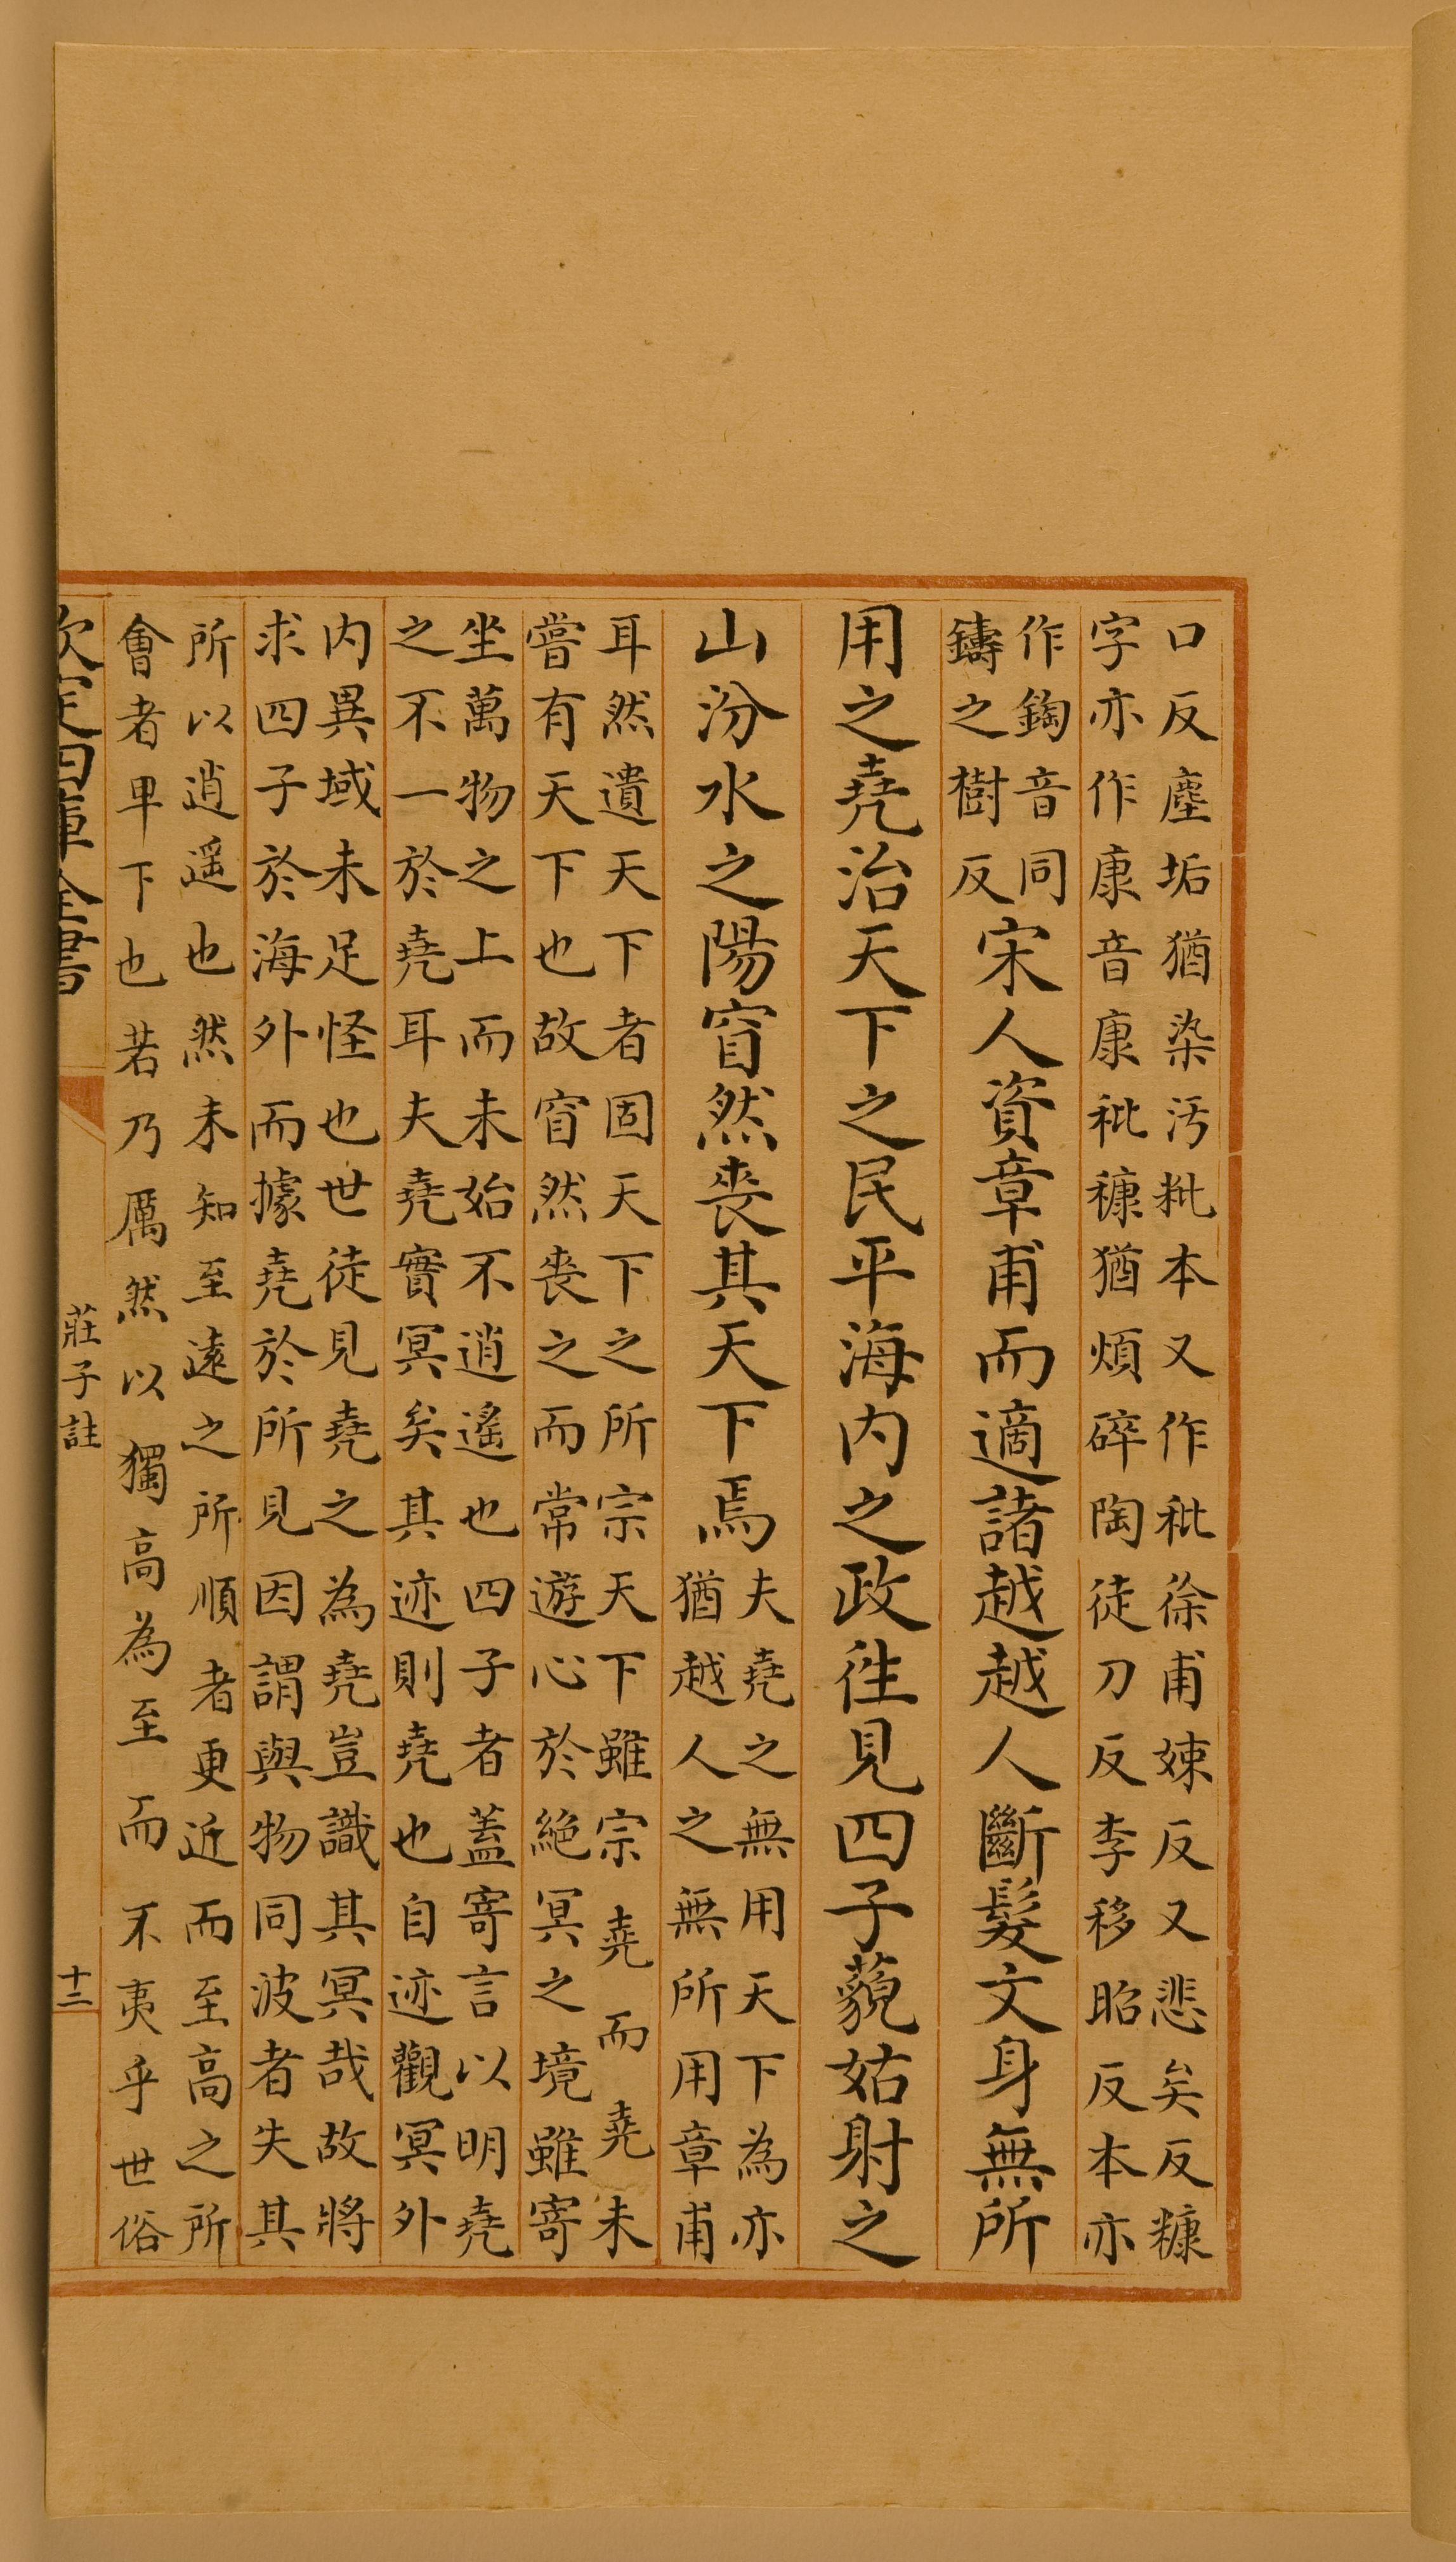 口反塵垢猶染汚粃本又作秕徐甫㛐反又悲矣反糠
字亦作康音康秕糠猶煩碎陶徒刀反李移昭反本亦
作鋾音同
鑄之樹反
宋人資章甫而適諸越越人斷髮文身無所
用之堯治天下之民平海内之政徃見四子藐姑射之
山汾水之陽窅然喪其天下焉
夫堯之無用天下為亦
猶越人之無所用章甫
耳然遺天下者固天下之所宗天下雖宗堯而堯未
嘗有天下也故窅然喪之而常遊心於絶冥之境雖寄
坐萬物之上而未始不逍遙也四子者蓋寄言以明堯
之不一於堯耳夫堯實冥矣其迹則堯也自迹觀冥外
内異域未足怪也世徒見堯之為堯豈識其冥哉故將
求四子於海外而據堯於所見因謂與物同波者失其
所以逍遥也然未知至逺之所順者更近而至高之所
㑹者卑下也若乃厲然以獨高為至而不夷乎世俗
欽定四庫全書
莊子註
十二